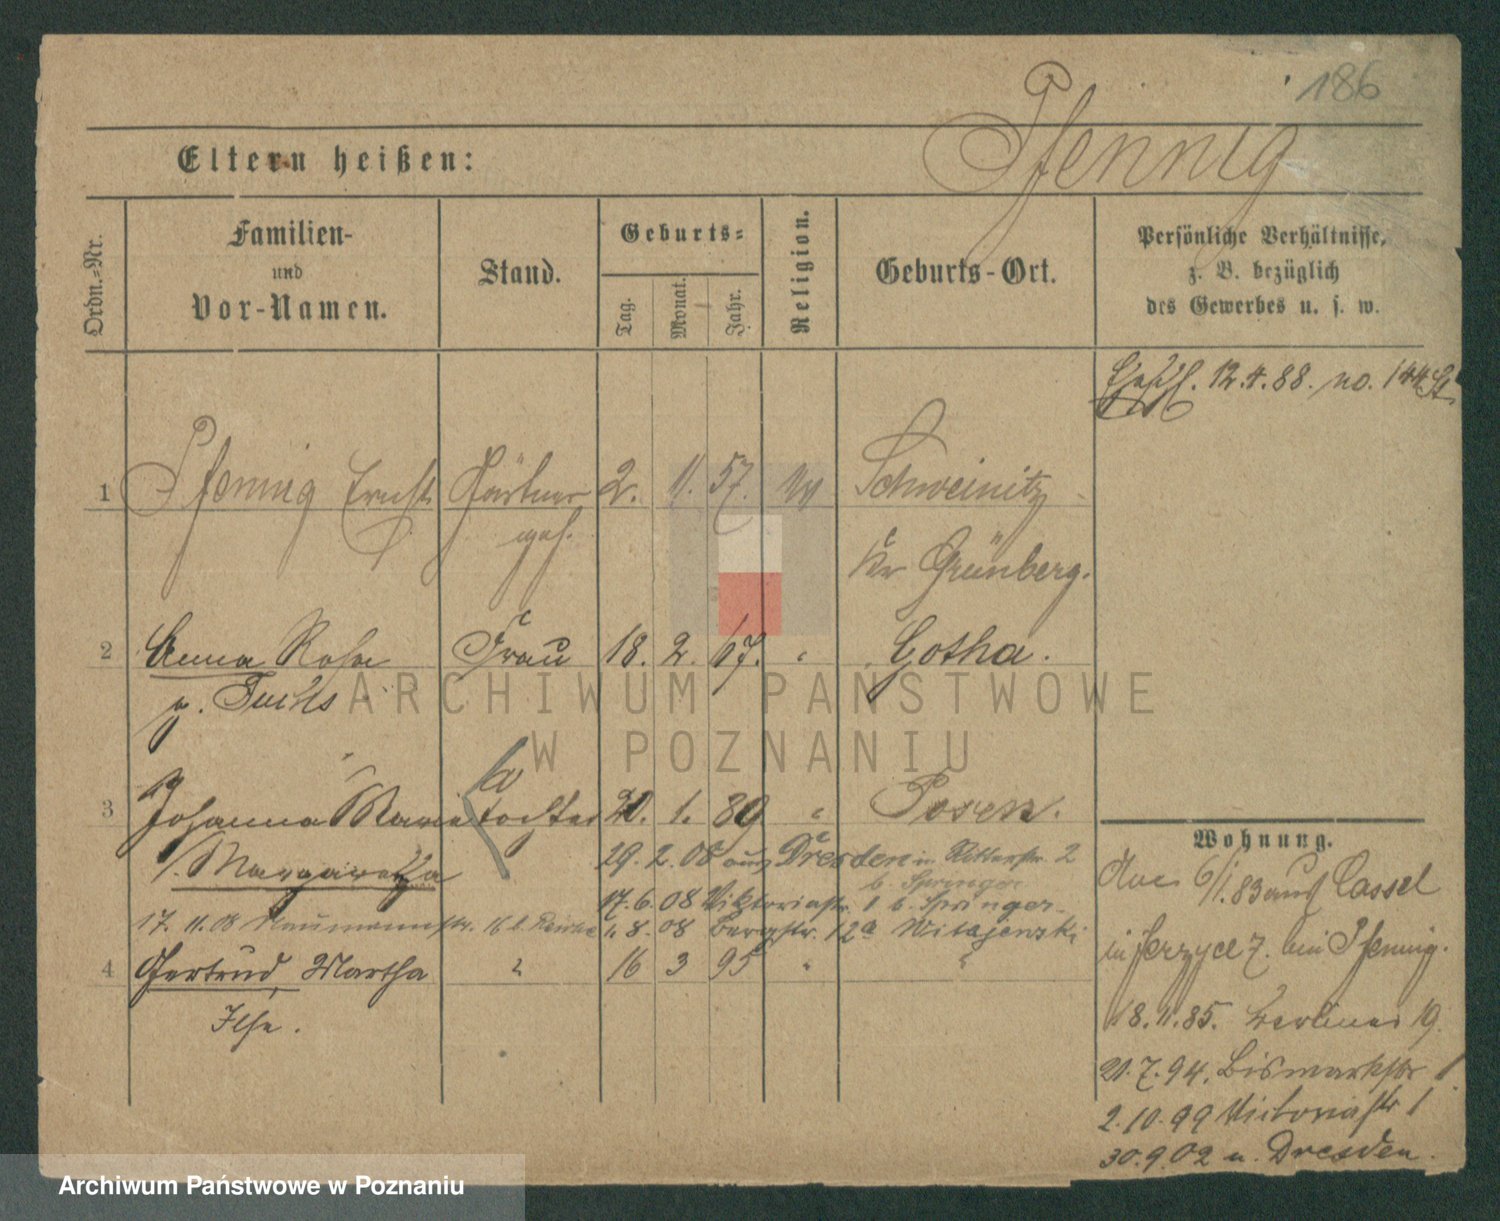 186
Pfennig
Eltern heißen:
Ordn.-Nr.
Familien-
und
Vor-Namen.
Stand.
Geburts-
Tag.
Monat.
Jahr.
Religion.
Geburts-Ort.
Persönliche Verhältnisse,
z. B. bezüglich
des Gewerbes u. s. w.
12.4.88. no. 144 St
1 Pfennig Ernst Gärtner 2. 11. 57. Schweinitz
geh.
Kr Grünberg.
2 Anna Rosa Frau 18. 2. 67. " Gotha.
g. Fuchs
ARCHIWUM PAŃSTWOWE
W POZNANIU
3 Johanna Marie Tochter 20. 1. 89 " Posen.
Margaretha
29. 2. 08 aus Dresden in Ritterstr. 2
b. Springer
17. 6. 08 Viktoriastr. 1 b. Springer
17. 11. 08 Naumannstr. 16 b. 1. 8. 08 Bergstr. 12a Witajewski
4 Gertrud, Martha " 16 3 95 " "
Ilse.
Wohnung.
6/1.83 aus Cassel
in Jerzyce 7. bei Pfennig.
18.11.85. Berliner 19.
21.7.94. Bismarckstr 1.
2.10.99 Victoriastr 1
30.9.02 n. Dresden.
Archiwum Państwowe w Poznaniu